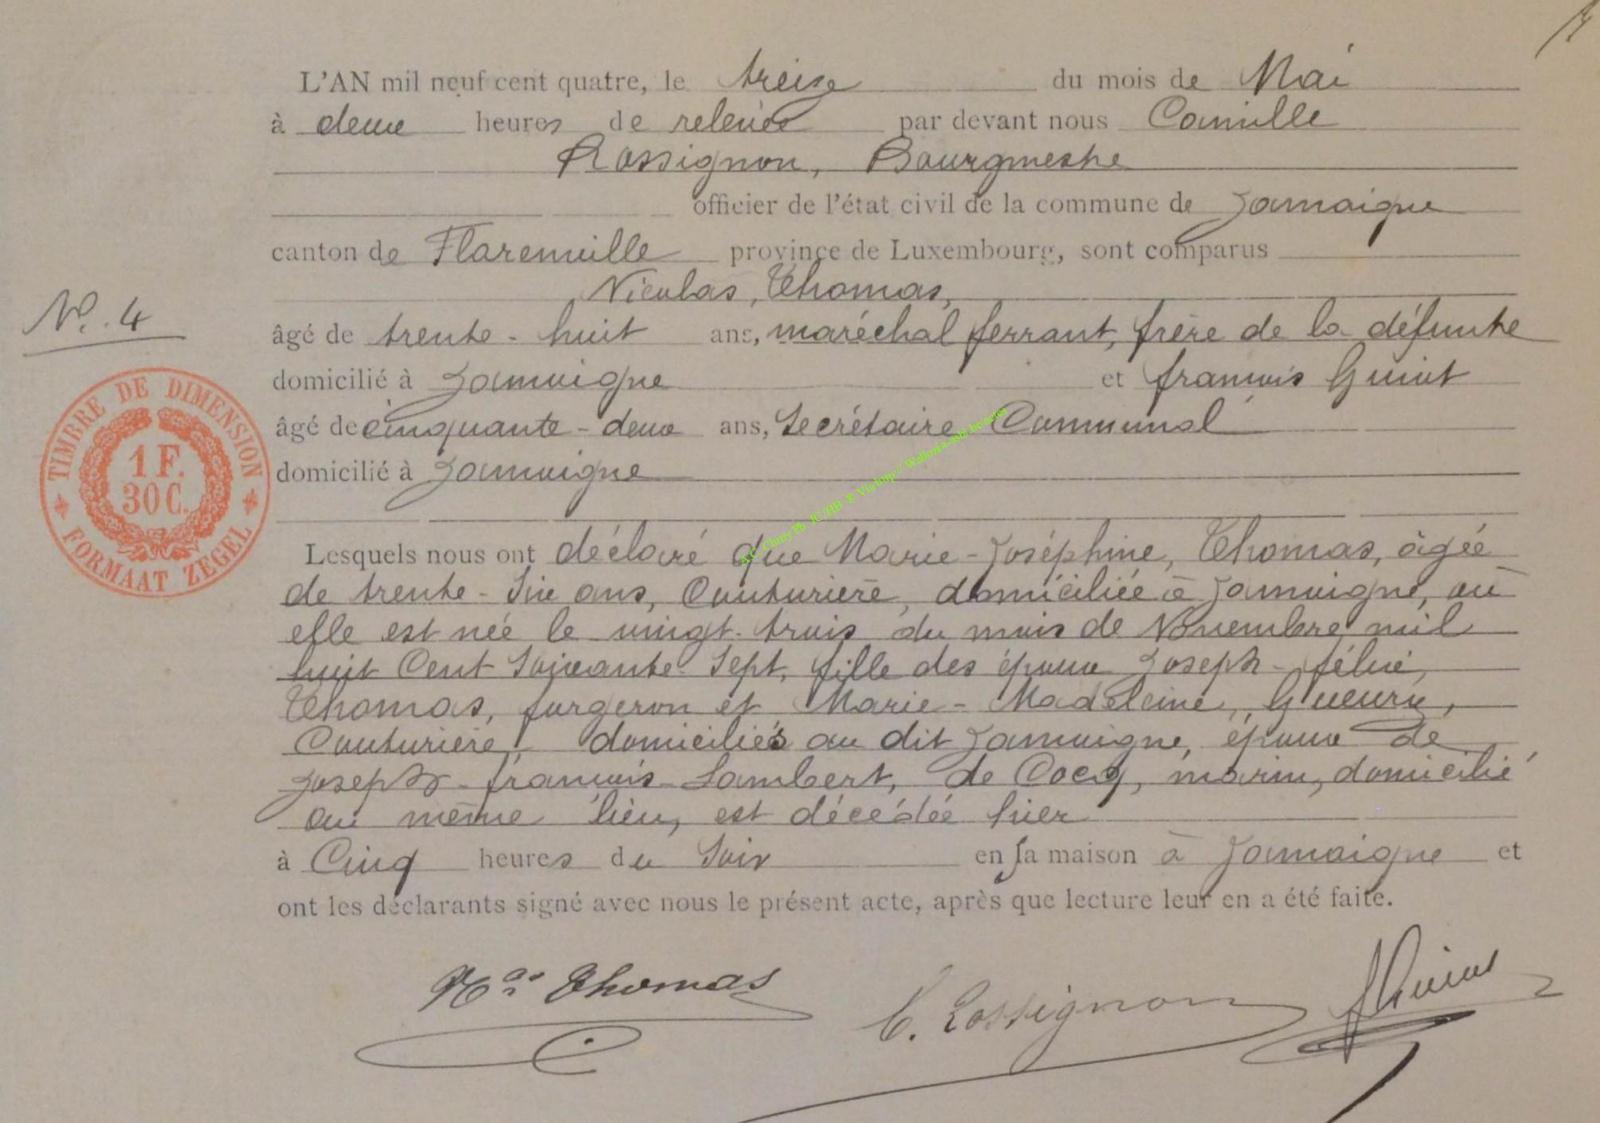 L'AN mil neuf cent quatre, le treize du mois de Mai
à deux heures de relevée par devant nous Camille
Rossignon, Bourgmestre
officier de l'état civil de la commune de Jamoigne
canton de Florenville province de Luxembourg, sont comparus
Nicolas, Thomas,
No. 4
âgé de trente-huit ans, maréchal ferrant, frère de la défunte
domicilié à Jamoigne et françois Guiot
âgé de cinquante-deux ans, Secrétaire Communal
domicilié à Jamoigne
TIMBRE DE DIMENSION
1 F.
30 C.
FORMAAT ZEGEL
Lesquels nous ont déclaré que Marie-Joséphine, Thomas, âgée
de trente-Six ans, Couturière, domiciliée à Jamoigne, où
elle est née le vingt-trois du mois de Novembre mil
huit Cent Soixante Sept, fille des époux Joseph-félix,
Thomas, forgeron et Marie-Madeleine,
Couturière, domiciliés au dit Jamoigne, épouse de
Joseph-françois-Lambert, de Cocq, marin, domicilié
au même lieu, est décédée hier
à Cinq heures du Soir en sa maison à Jamoigne et
ont les déclarants signé avec nous le présent acte, après que lecture leur en a été faite.
Nas Thomas
C. Rossignon
f Guiot